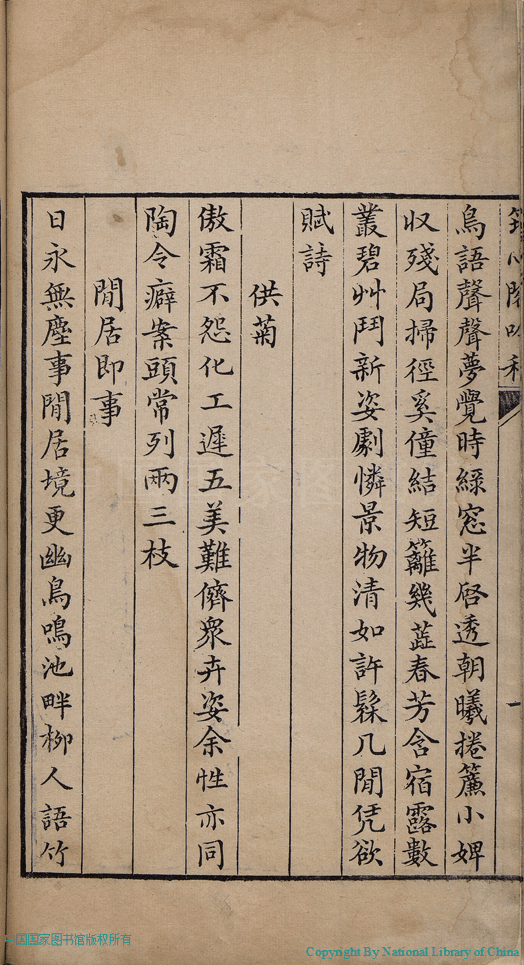 鳥語聲聲夢覺時綠窓半啓透朝曦捲簾小婢
収殘局掃徑奚僮結短籬幾蕋春芳含宿露數
叢碧艸鬥新姿劇憐景物清如許髹几閒凭欲
賦詩
供菊
傲霜不怨化工遲五美難儕衆卉姿余性亦同
陶令癖案頭常列兩三枝
閒居即事
日永無塵事閒居境更幽鳥鳴池畔柳人語竹
一
国国家图书馆版权所有
Copyright By National Library of China